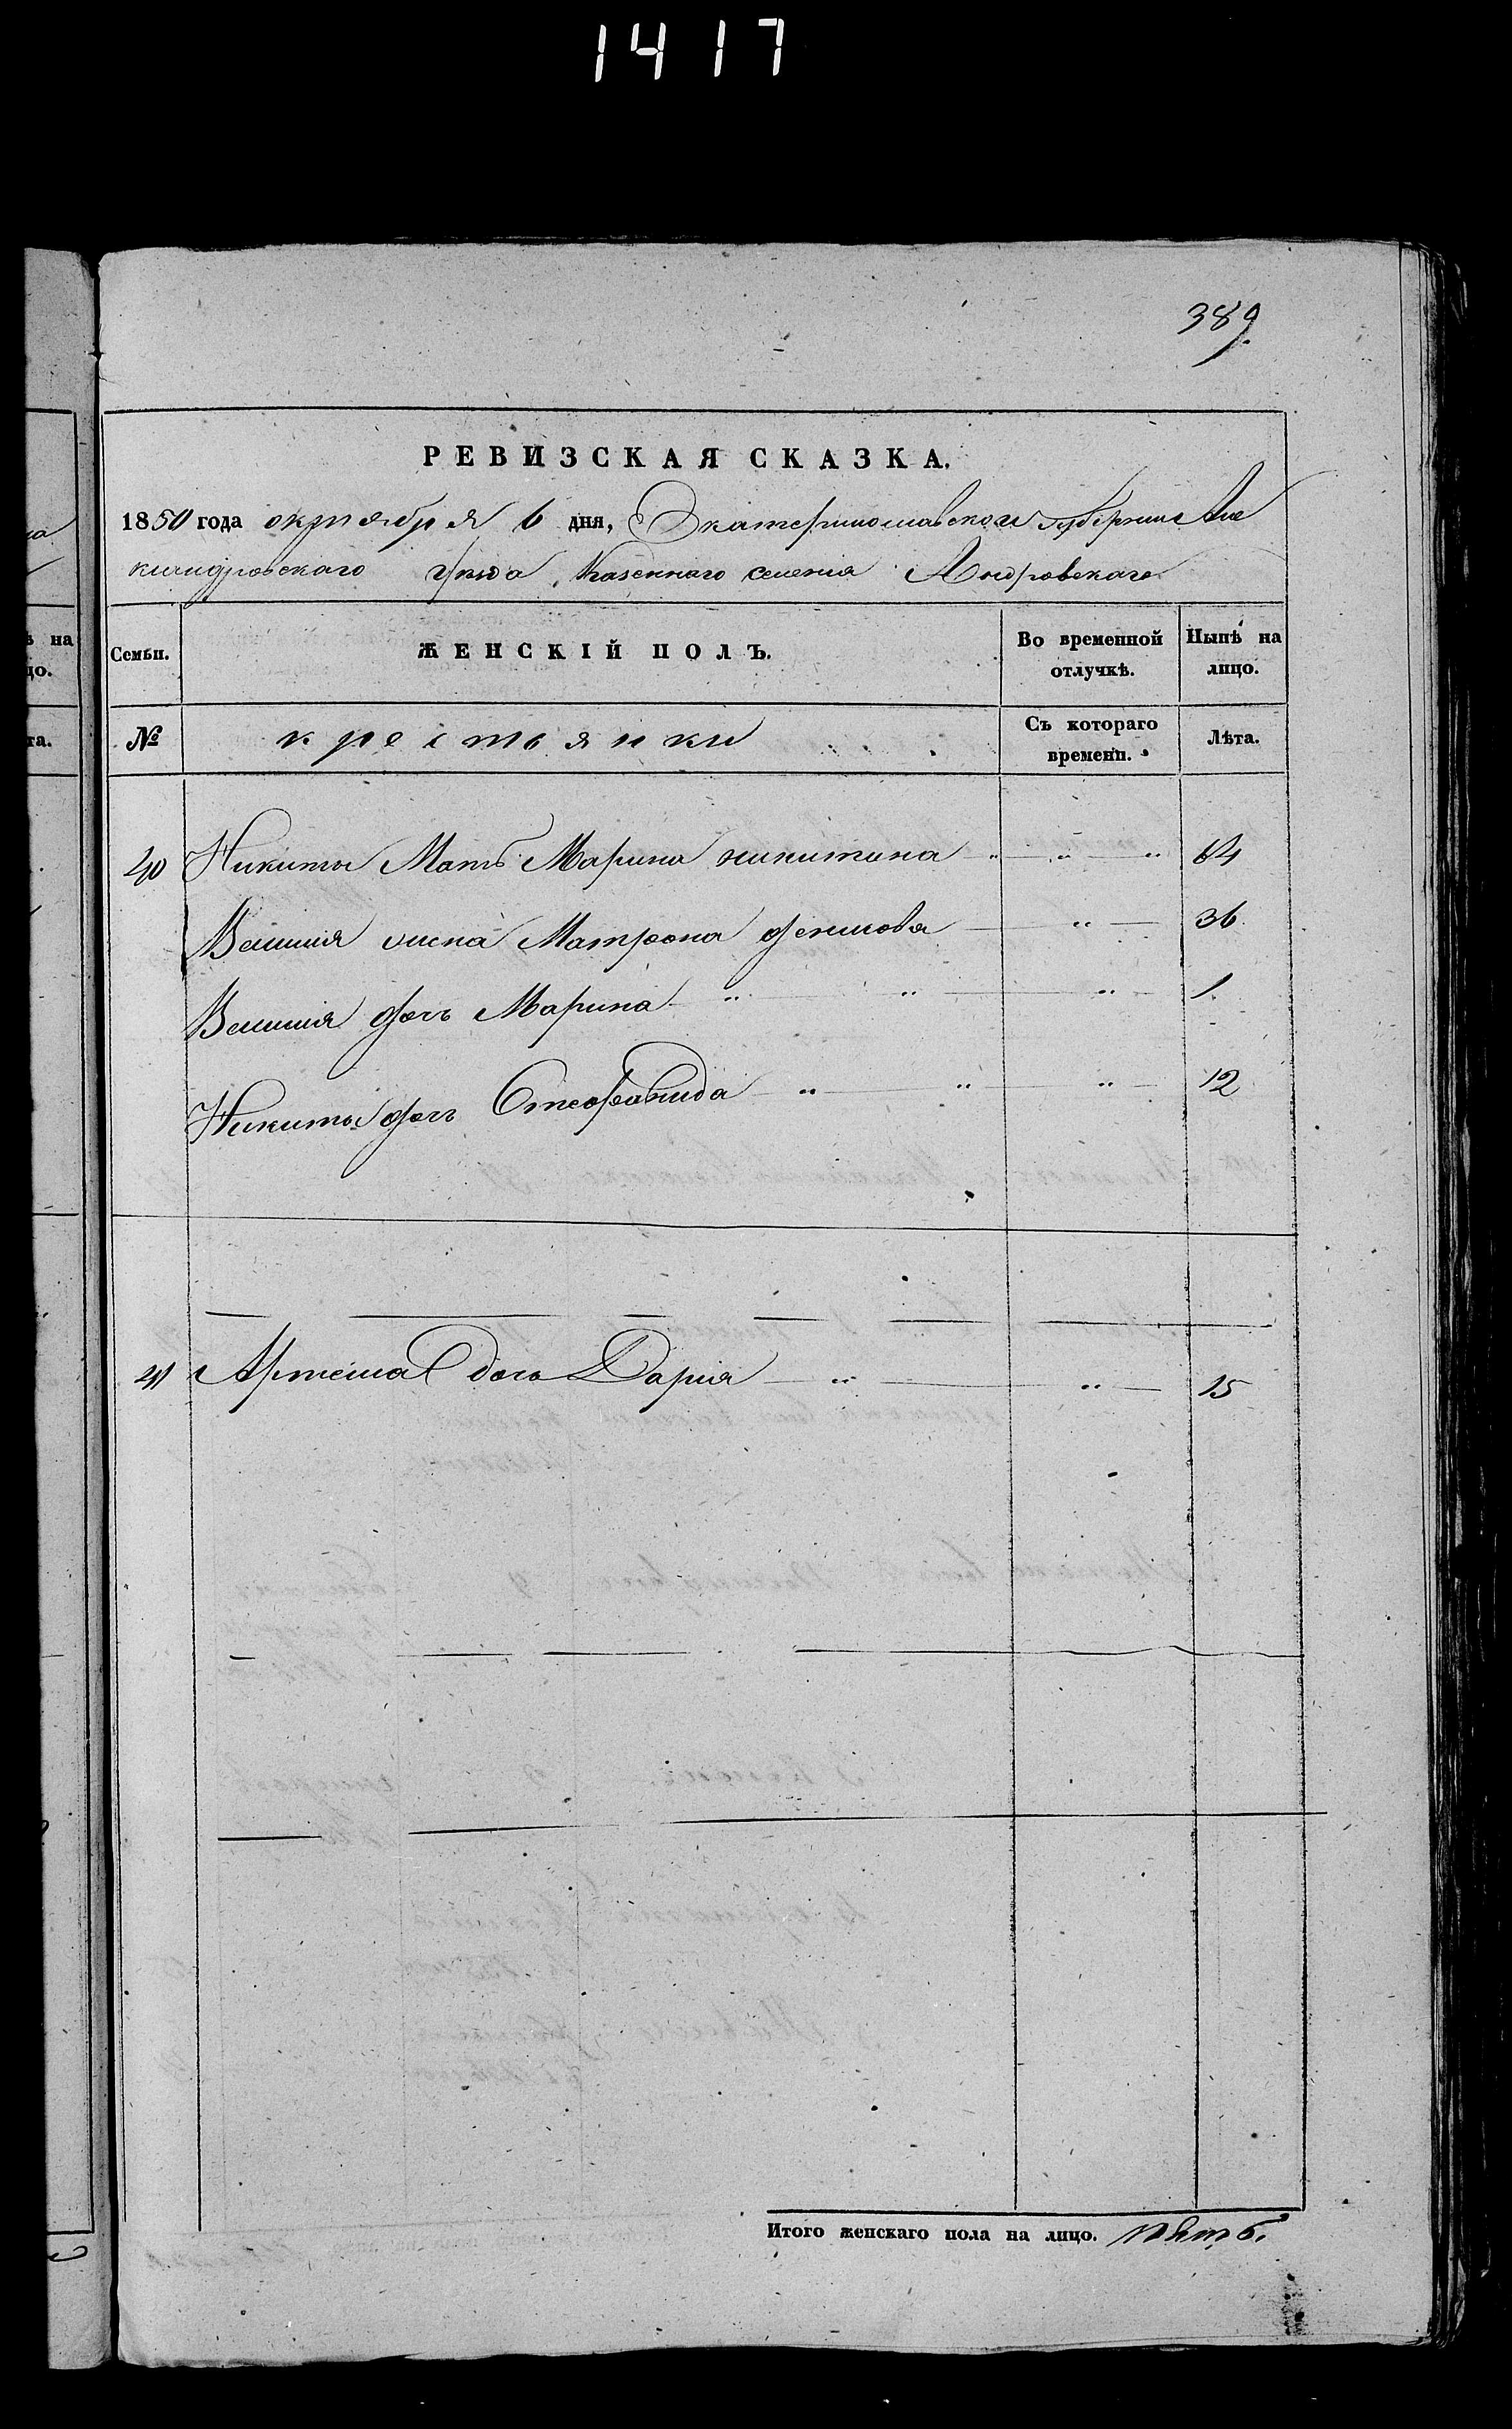 1417
389.
РЕВИЗСКАЯ СКАЗКА.
1850 года октября 6 дня, Екатеринославской Губернии Але
ксандровскаго уѣзда, Казеннаго селенія Андровскаго
Семьи. ЖЕНСКІЙ ПОЛЪ. Во временной отлучкѣ. Нынѣ на лицо.
№ крестьянки Съ котораго времени. Лѣта.
40 Никиты Мать Марина никитина " " " 64
жена Матрона " 36
дочь Марина " " " 1.
Никиты дочь Стефанида " " " 12
41 Артема дочь Дарія " " 15
Итого женскаго пола на лицо. пять.